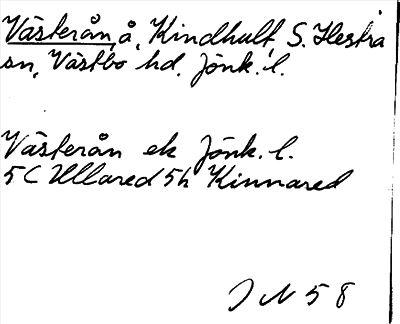 Västerån, å, Kindhult, S. Hestra
sn, Västbo hd. Jönk. l.
Västerån ek Jönk. l.
5C Ullared 5h Kinnared
J N 58